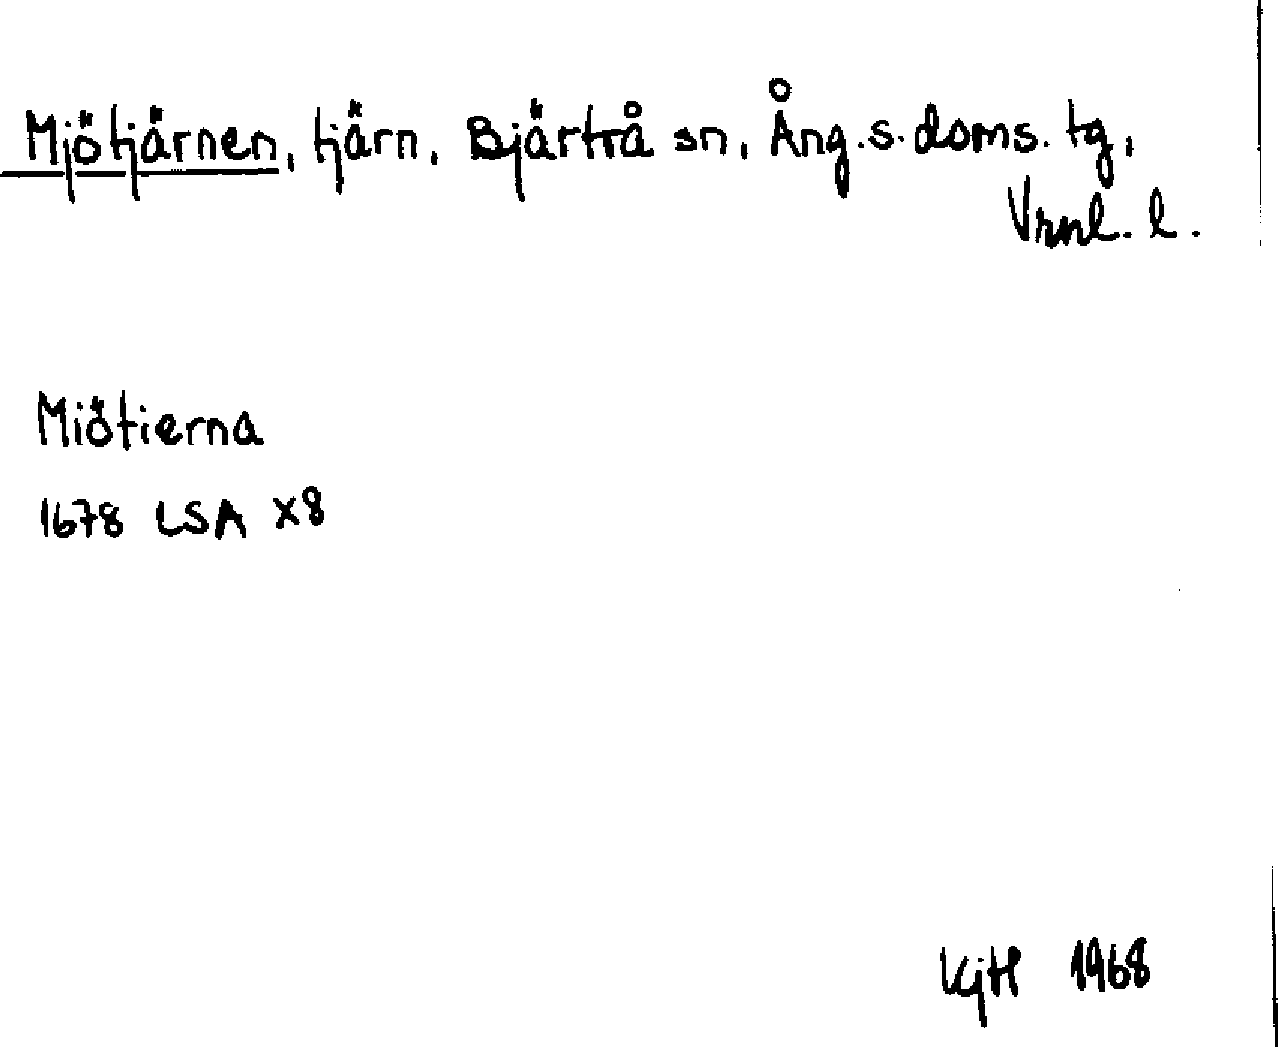 Mjötjärnen, tjärn, Bjärtrå sn, Ång.s.doms.tg,
Vrnl. l.
Miötierna
1678 LSA X8
KjH 1968